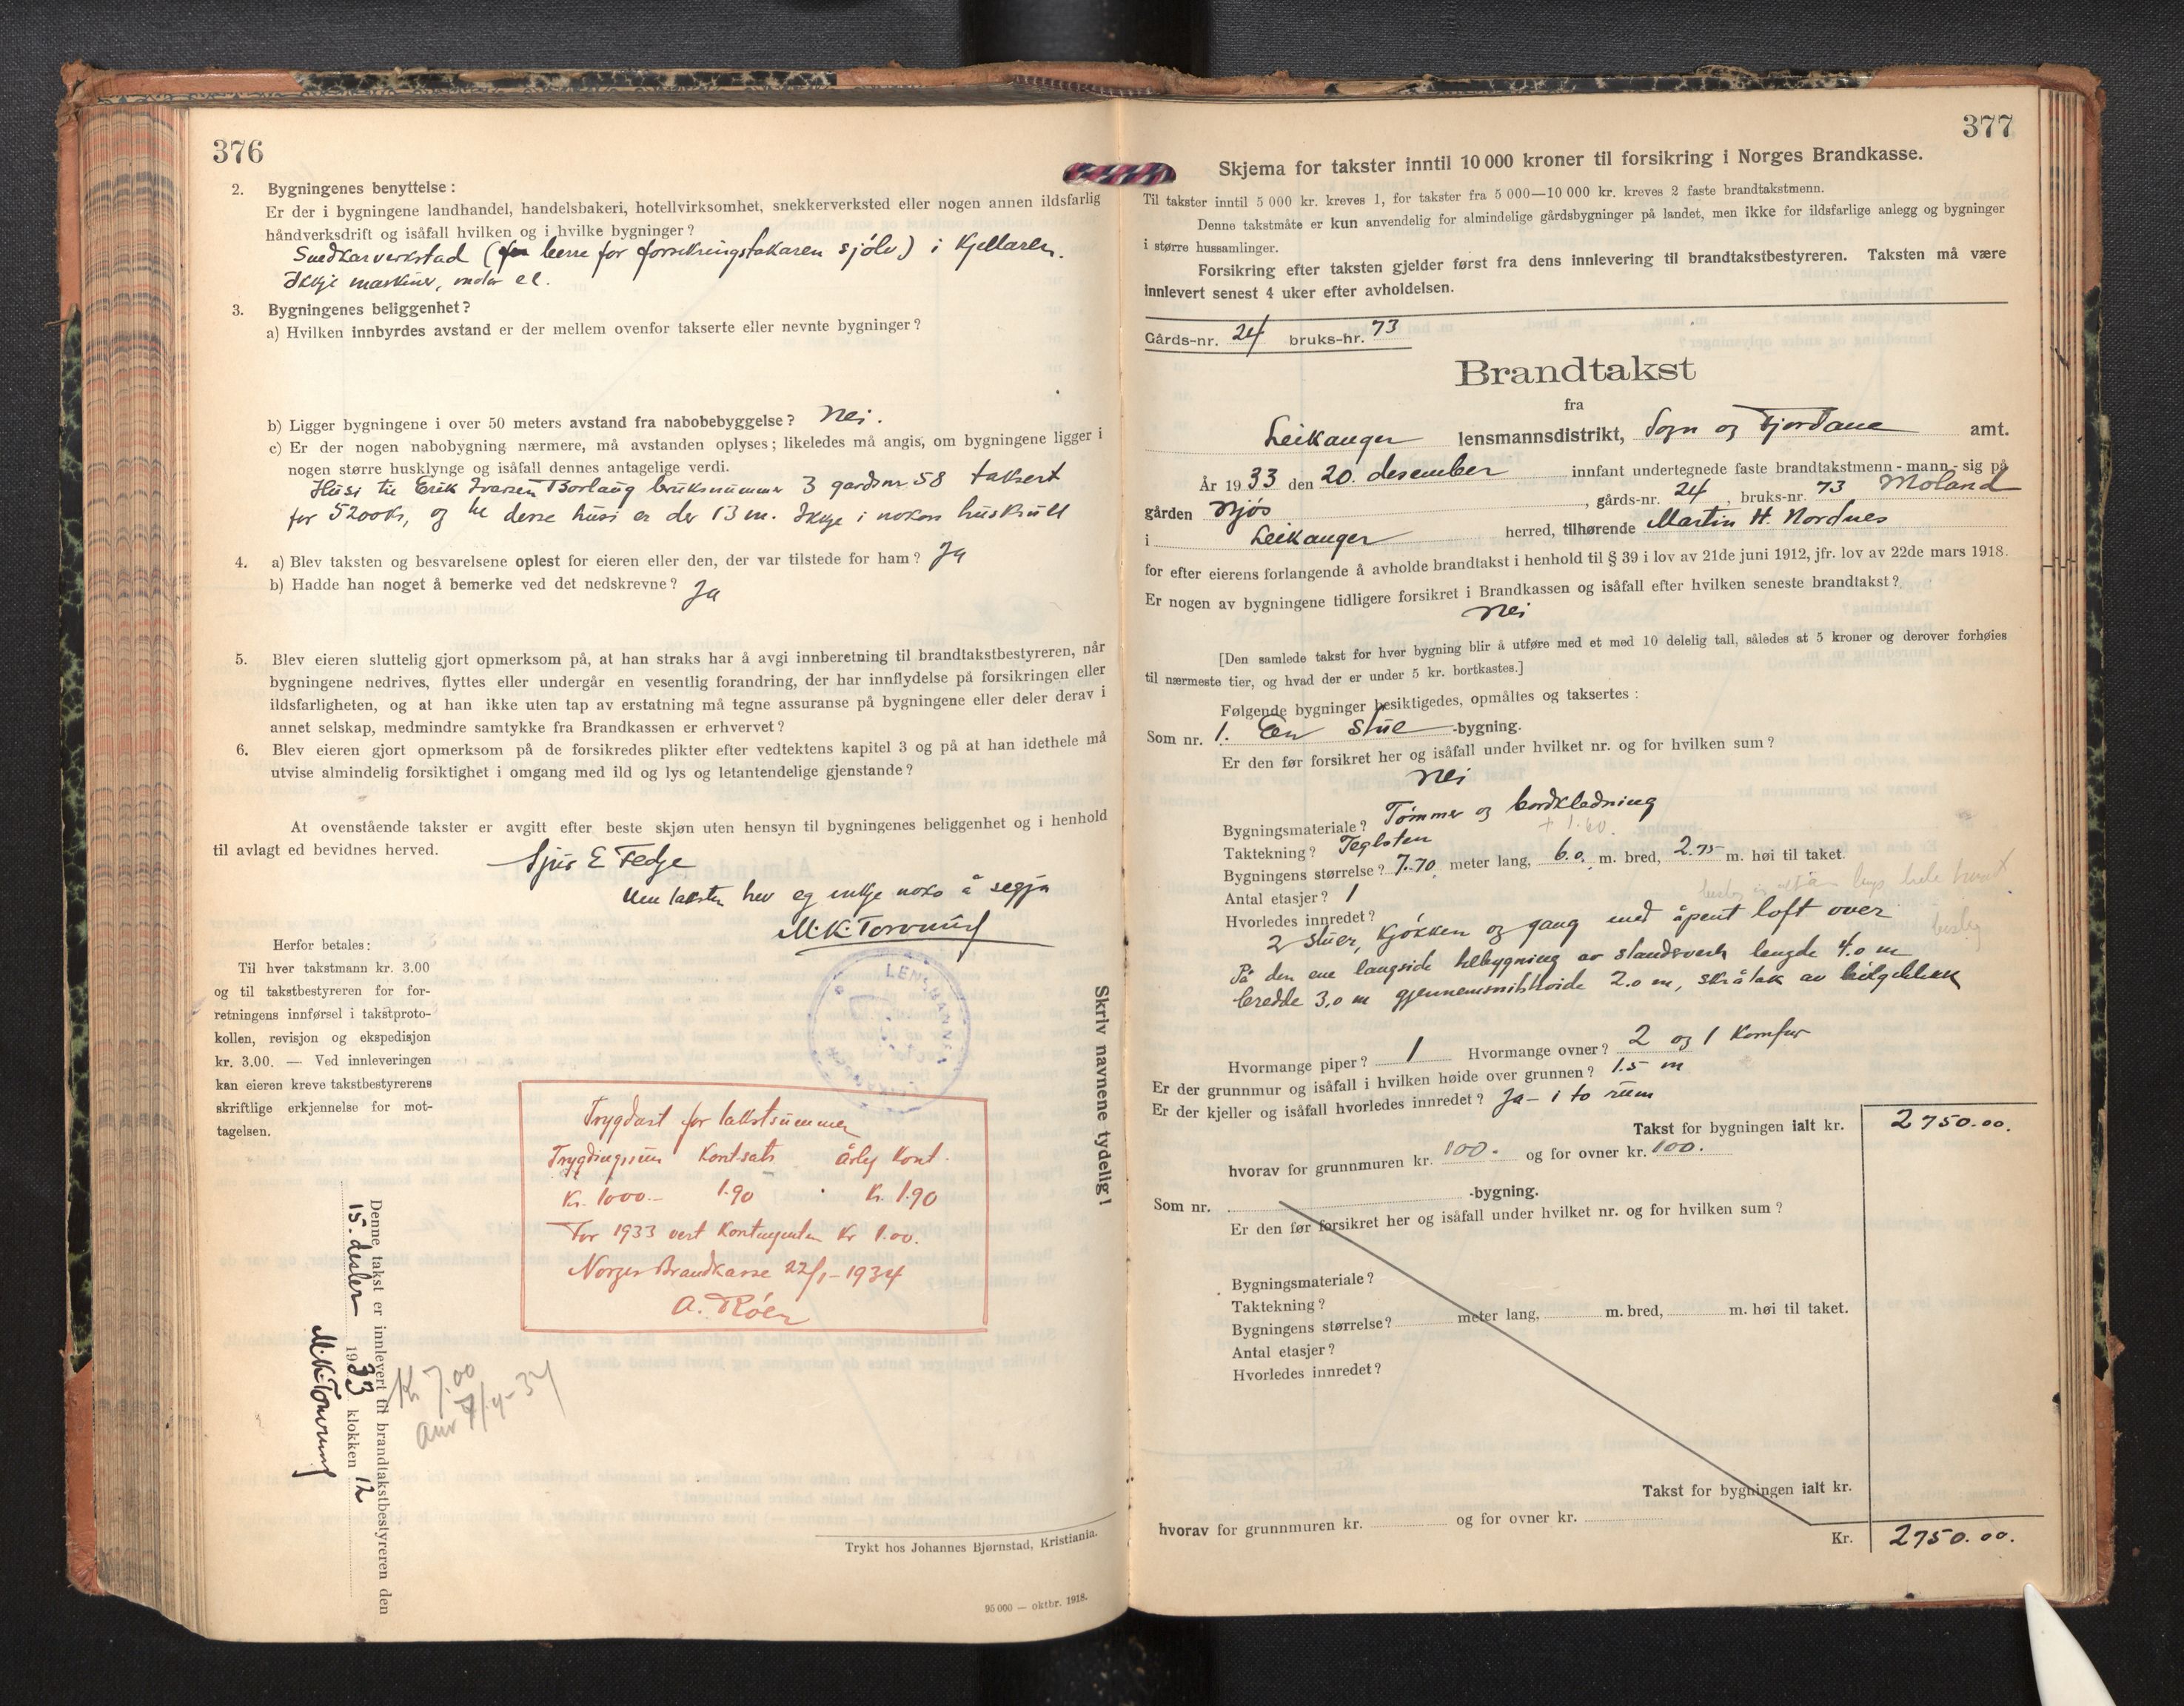 376
2. Bygningenes benyttelse:
Er der i bygningene landhandel, handelsbakeri, hotellvirksomhet, snekkerverksted eller nogen annen ildsfarlig
håndverksdrift og isåfall hvilken og i hvilke bygninger?
Snedkarverkstad ( berre for forsikringstakaren sjölv) i Kjellaren.
Ikkje maskiner, motor el.
3. Bygningenes beliggenhet?
a) Hvilken innbyrdes avstand er der mellem ovenfor takserte eller nevnte bygninger?
b) Ligger bygningene i over 50 meters avstand fra nabobebyggelse? Nei.
c) Er der nogen nabobygning nærmere, må avstanden oplyses; likeledes må angis, om bygningene ligger i
nogen større husklynge og isåfall dennes antagelige verdi.
Husi til Erik Ivarsen Borlaug bruksnummer 3 gardsnr 58 taksert
for 5200 kr, og til desse husi er der 13 m. Ikkje i nokon huskrull
4. a) Blev taksten og besvarelsene oplest for eieren eller den, der var tilstede for ham? Ja
b) Hadde han noget å bemerke ved det nedskrevne? Ja
5. Blev eieren sluttelig gjort opmerksom på, at han straks har å avgi innberetning til brandtakstbestyreren, når
bygningene nedrives, flyttes eller undergår en vesentlig forandring, der har innflydelse på forsikringen eller
ildsfarligheten, og at han ikke uten tap av erstatning må tegne assuranse på bygningene eller deler derav i
annet selskap, medmindre samtykke fra Brandkassen er erhvervet?
6. Blev eieren gjort opmerksom på de forsikredes plikter efter vedtektens kapitel 3 og på at han idethele må
utvise almindelig forsiktighet i omgang med ild og lys og letantendelige gjenstande?
At ovenstående takster er avgitt efter beste skjøn uten hensyn til bygningenes beliggenhet og i henhold
til avlagt ed bevidnes herved.
Sjur E Fedje
Um taksten hev eg inkje noko å segja
M.K. Torvund
LENSMANNEN
Herfor betales:
Til hver takstmann kr. 3.00
og til takstbestyreren for for-
retningens innførsel i takstproto-
kollen, revisjon og ekspedisjon
kr. 3.00. — Ved innleveringen
kan eieren kreve takstbestyrerens
skriftlige erkjennelse for mot-
tagelsen.
Trygdast for takstsummen
Trygdingssum Kontsats årleg Kont.
Kr. 1000.- 1.90 Kr. 1.90
For 1933 vert Kontingenten Kr 1.00.
Norges Brandkasse 22/1-1934
A. Röen
Denne takst er innlevert til brandtakstbestyreren den
15. desber 1933 klokken 12
M.K. Torvund
Kr 7.00
Skriv navnene tydelig!
Trykt hos Johannes Bjørnstad, Kristiania.
95 000 — oktbr. 1918.
377
Skjema for takster inntil 10 000 kroner til forsikring i Norges Brandkasse.
Til takster inntil 5 000 kr. kreves 1, for takster fra 5 000—10 000 kr. kreves 2 faste brandtakstmenn.
Denne takstmåte er kun anvendelig for almindelige gårdsbygninger på landet, men ikke for ildsfarlige anlegg og bygninger
i større hussamlinger.
Forsikring efter taksten gjelder først fra dens innlevering til brandtakstbestyreren. Taksten må være
innlevert senest 4 uker efter avholdelsen.
Gårds-nr. 24 bruks-nr. 73
Brandtakst
fra
Leikanger lensmannsdistrikt, Sogn og Fjordane amt.
År 1933 den 20. desember innfant undertegnede faste brandtakstmenn - mann - sig på
gården Njøs, gårds-nr. 24, bruks-nr. 73 Moland
i Leikanger herred, tilhørende Martin H. Nordnes
for efter eierens forlangende å avholde brandtakst i henhold til § 39 i lov av 21de juni 1912, jfr. lov av 22de mars 1918.
Er nogen av bygningene tidligere forsikret i Brandkassen og isåfall efter hvilken seneste brandtakst?
Nei
[Den samlede takst for hver bygning blir å utføre med et med 10 delelig tall, således at 5 kroner og derover forhøies
til nærmeste tier, og hvad der er under 5 kr. bortkastes.]
Følgende bygninger besiktigedes, opmåltes og taksertes:
Som nr. 1. En stue -bygning.
Er den før forsikret her og isåfall under hvilket nr. og for hvilken sum?
Nei
Bygningsmateriale? Tømmer og bordkledning
+ 1.60.
Taktekning? Teglsten
Bygningens størrelse? 7.70 meter lang, 6.0. m. bred, 2.75 m. høi til taket.
Antal etasjer? 1
Hvorledes innredet?
2 stuer, kjøkken og gang med åpent loft over
På den ene langside tilbygning av standsverk lengde 4.0 m
bredde 3.0 m gjennemsnitshøide 2.0 m, skråtak av bølgeblikk
Hvormange piper? 1 Hvormange ovner? 2 og 1 Komfur
Er der grunnmur og isåfall i hvilken høide over grunnen? 1.5 m
Er der kjeller og isåfall hvorledes innredet? Ja - i to rum
Takst for bygningen ialt kr. 2750.00.
hvorav for grunnmuren kr. 100. og for ovner kr. 100.
Som nr. -bygning.
Er den før forsikret her og isåfall under hvilket nr. og for hvilken sum?
Bygningsmateriale?
Taktekning?
Bygningens størrelse? meter lang, m. bred, m. høi til taket.
Antal etasjer?
Hvorledes innredet?
Takst for bygningen ialt kr.
hvorav for grunnmuren kr. og for ovner kr.
Kr. 2750.00.